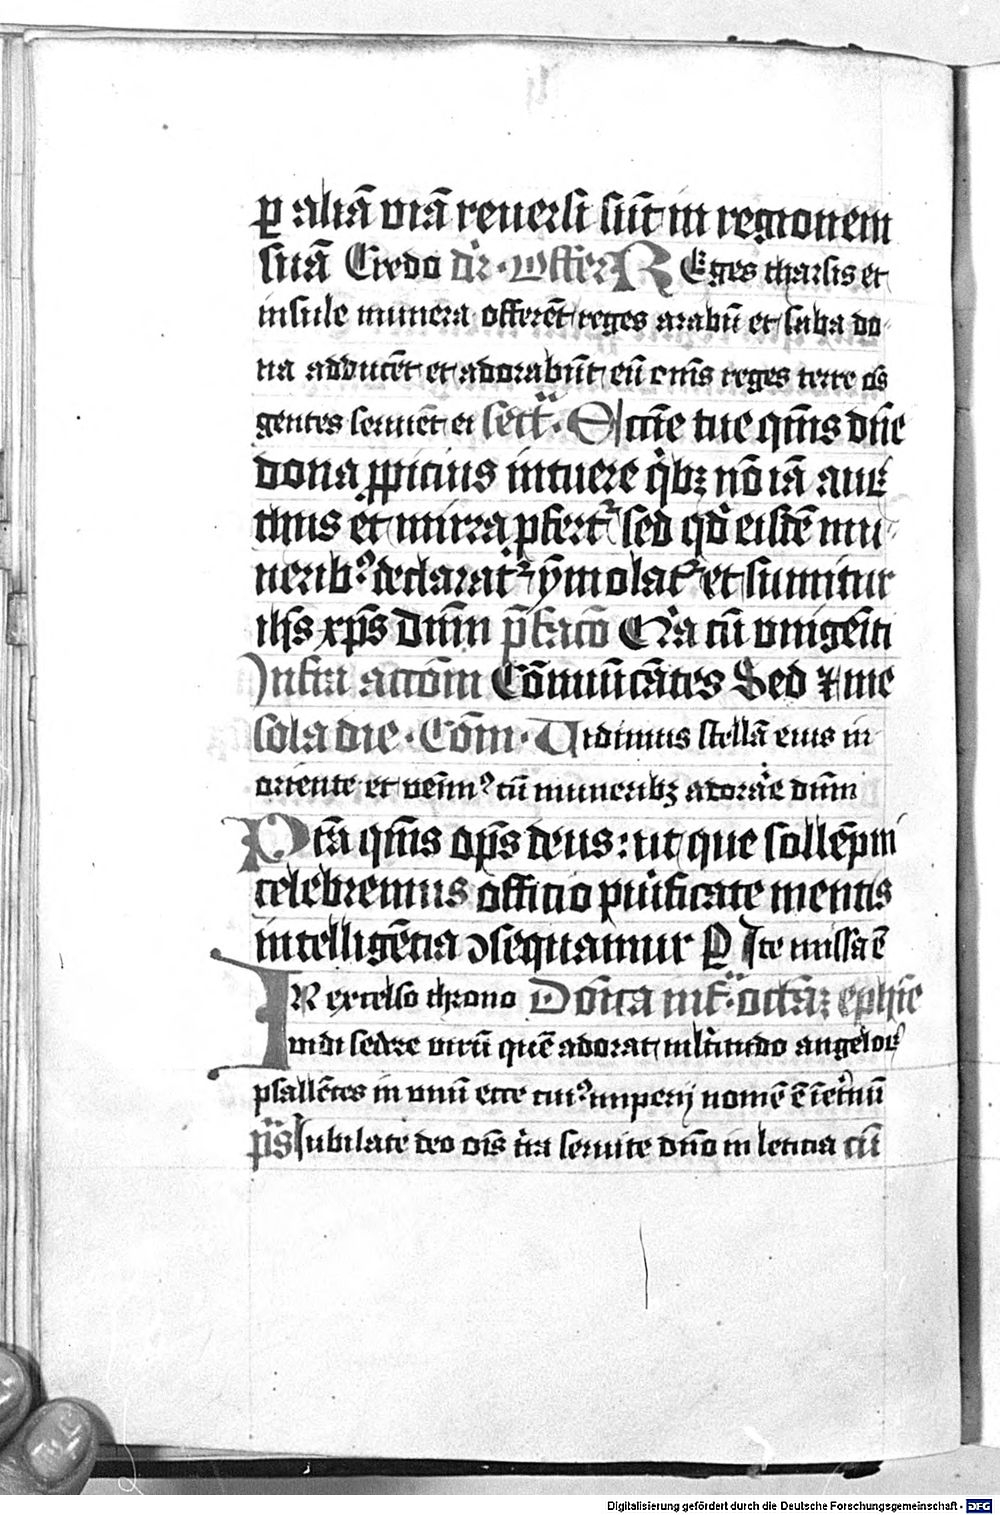 ꝑ aliā viā reuersi sūt in regionem
suā Credo dr̄ · Offer REges tharsis et
insule munera offerēt reges arabū et saba do
na adducēt et adorabūt eū om̄s reges terre oēs
gentes seruiēt ei secr̄t · Eccl̄ie tue qm̄s dn̄e
dona ꝓpicius intuere qͥbꝫ nō iā auꝝ
thus et mirra ꝓfertᷣ sed qd̓ eisdē mu-
neribꝰ declaratᷣ ymolatᷣ et sumitur
ihs̄ xp̄s dn̄m p̄facō Qͥa cū vnigēiti
Infra accōm Cōmunicātes Sed ⁊ me
sola die · Cōm · Vidimus stellā eius in
oriente et venimꝰ cū muneribꝫ adorāe dn̄m
Pr̄ta qm̄s op̄s deus : vt que sollēpni
celebremus officio purificate mentis
intelligētia ↄsequamur P Ite missa ē
IN excelso throno Dōica inf̄ · octaꝝ eph̄ie
vidi sedere virū quē adorat ml̓titudo angeloꝝ
psallētes in vnū ecce cuiꝰ imperij nomē ē ī et̓nū
pͣs Jubilate deo oīs t̓ra seruite dn̄o in leticia cū
Digitalisierung gefördert durch die Deutsche Forschungsgemeinschaft - DFG